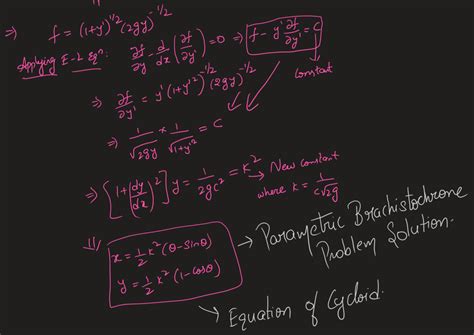 ⇒ f = (1+y')^{1/2} (2gy)^{-1/2}
Applying E-L Eqⁿ: ∂f/∂y - d/dx (∂f/∂y') = 0 ⇒ f - y' ∂f/∂y' = C
Constant
⇒ ∂f/∂y' = y' (1+y'^2)^{-1/2} (2gy)^{-1/2}
⇒ 1/√2gy × 1/√1+y'^2 = C
⇒ [1+(dy/dx)^2] y = 1/2gc^2 = k^2 → New constant
where k = 1/c√2g
x = 1/2 k^2 (θ - sinθ)
y = 1/2 k^2 (1 - cosθ)
→ Parametric Brachistochrone
Problem Solution.
→ Equation of Cycloid.